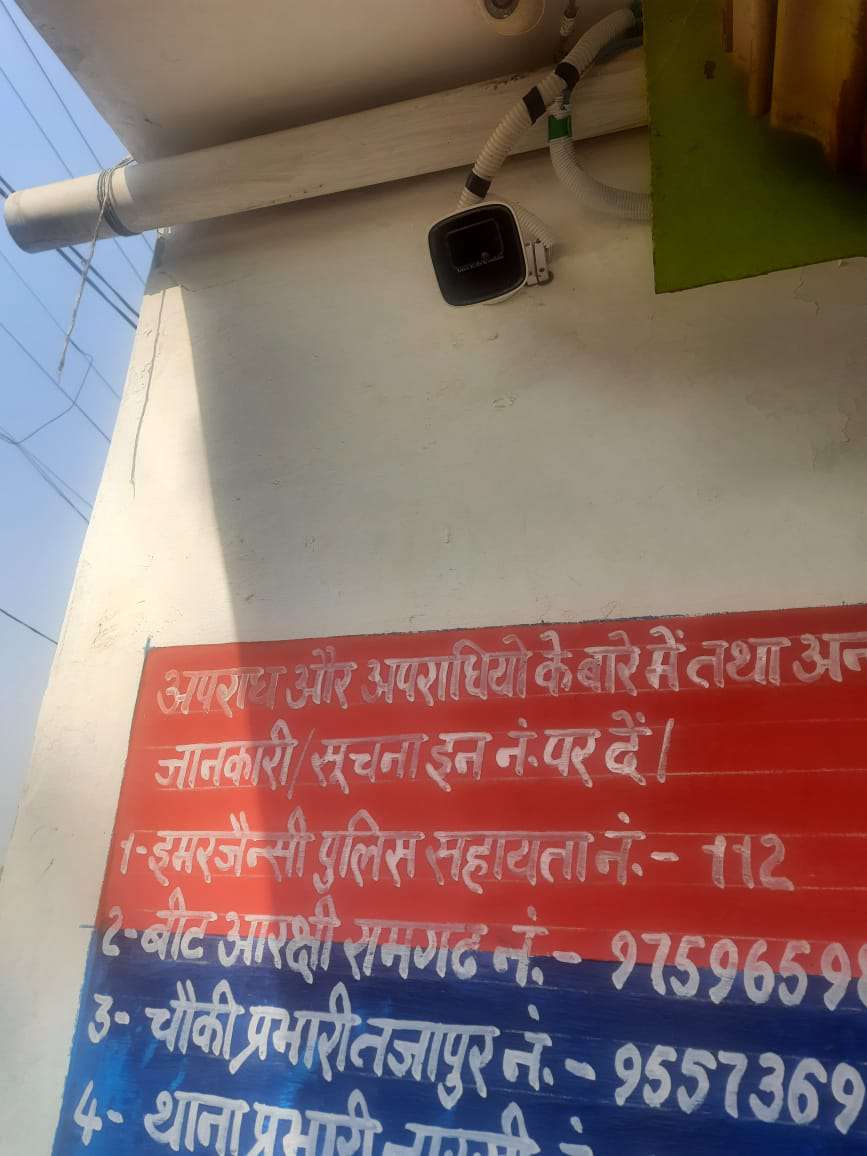 अपराध और अपराधियो के बारे में तथा अन
जानकारी/सूचना इन नं. पर दें।
1-इमरजैन्सी पुलिस सहायता नं.- 112
2-बीट आरक्षी रामगढ नं.- 9759659
3- चौकी प्रभारी तजापुर नं.- 9557369
4- थाना प्रभारी